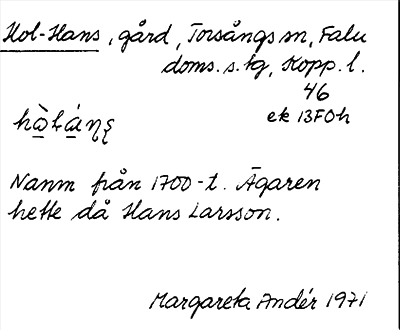 Hol-Hans, gård, Torsångs sn, Falu
doms. s. tg, Kopp. l.
46
ek 13F0h
Namn från 1700-t. Ägaren
hette då Hans Larsson.
Margareta Andér 1971